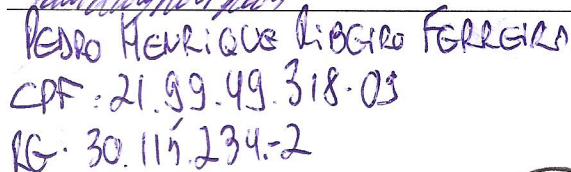 PEDRO HENRIQUE RIBEIRO FERREIRA
CPF: 21.99.49.318-09
RG. 30.115.234.-2